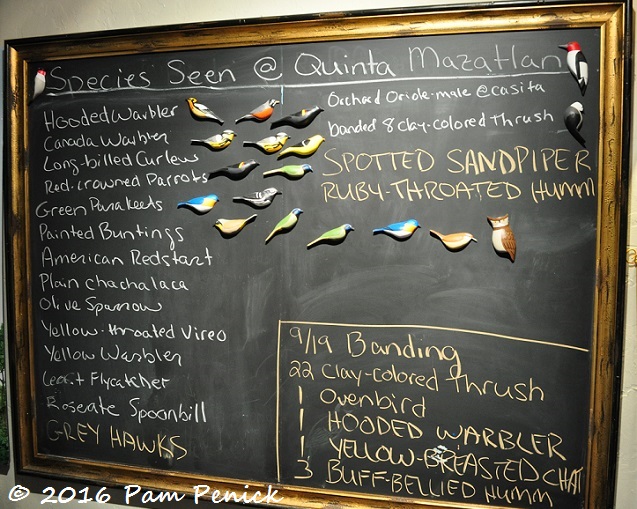 Species Seen @ Quinta Mazatlan
Hooded Warbler
Canada Warbler
Long-billed Curlew
Red-crowned Parrots
Green Parakeets
Painted Buntings
American Redstart
Plain Chachalaca
Olive Sparrow
Yellow-throated Vireo
Yellow Warbler
Least Flycatcher
Roseate Spoonbill
GREY HAWKS
Orchard Oriole-male @casita
banded 8 clay-colored thrush
SPOTTED SANDPIPER
RUBY-THROATED HUMM
9/19 Banding
22 Clay-colored Thrush
1 Ovenbird
1 HOODED WARBLER
1 YELLOW-BREASTED CHAT
3 BUFF-BELLIED HUMM
© 2016 Pam Penick